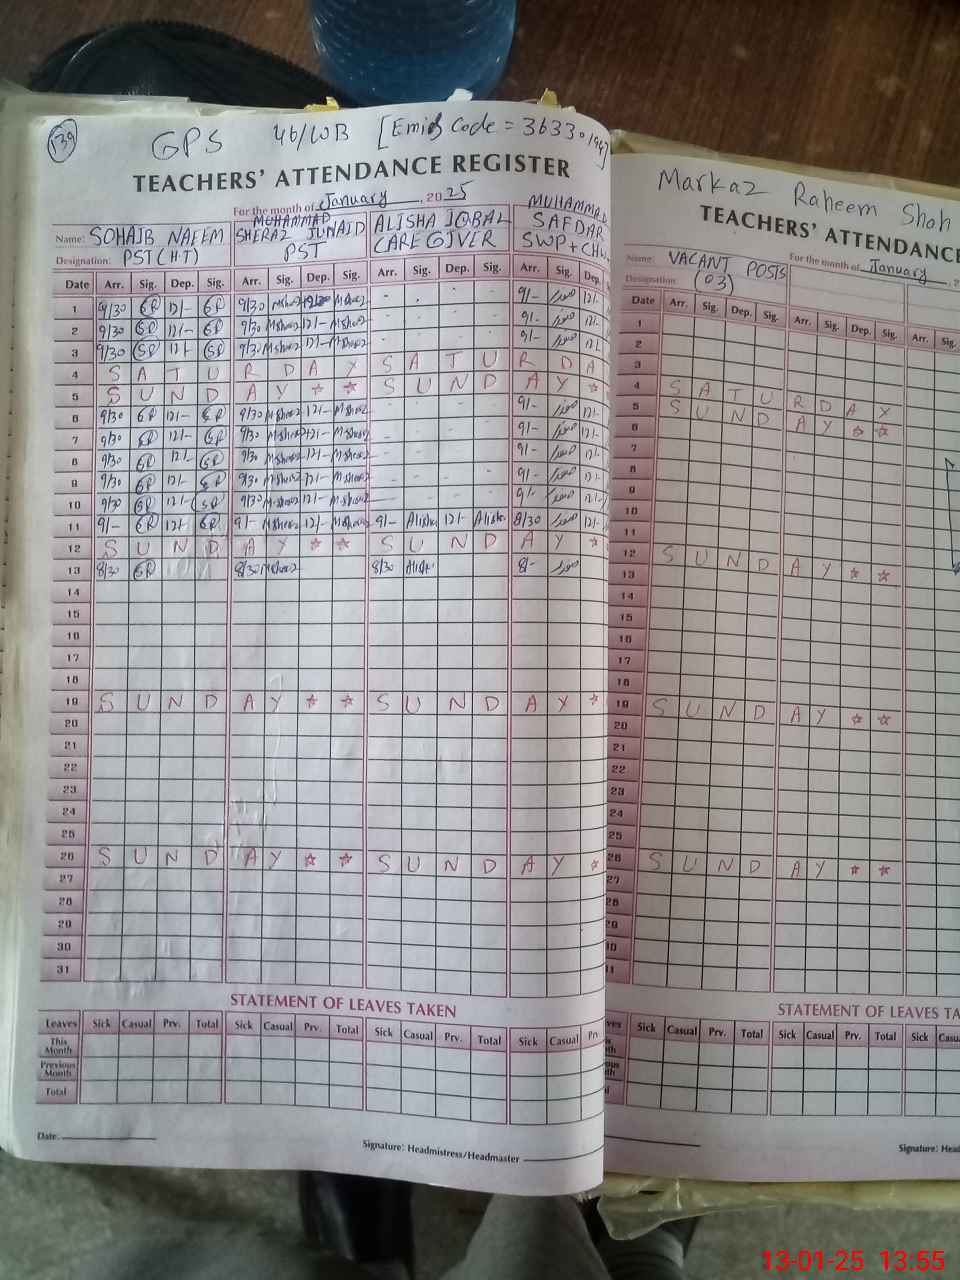 139
GPS 46/WB [Emis Code = 3633
TEACHERS' ATTENDANCE REGISTER
For the month of January, 2025
Name: SOHAIB NAEEM MUHAMMAD SHERAZ JUNAID ALISHA IQBAL MUHAMMAD SAFDAR
Designation: PST(H.T) PST CARE GIVER SWP+
Date Arr. Sig. Dep. Sig. Arr. Sig. Dep. Sig. Arr. Sig. Dep. Sig. Arr. Sig. Dep.
1 9/30 GR 12/- GR 9/30 12/30 - - - - 9/- 12/-
2 9/30 GR 12/- GR 9/30 12/- - - - - 9/- 12/-
3 9/30 GR 12/- GR 9/30 12/- - - - - 9/- 12/-
4 S A T U R D A Y S A T U R D A
5 S U N D A Y ☆ ☆ S U N D A Y ☆
6 9/30 GR 12/- GR 9/30 12/- - - - - 9/- 12/-
7 9/30 GR 12/- GR 9/30 12/- - - - - 9/- 12/-
8 9/30 GR 12/- GR 9/30 12/- - - - - 9/- 12/-
9 9/30 GR 12/- GR 9/30 12/- - - - - 9/- 12/-
10 9/30 GR 12/- GR 9/30 12/- - - - - 9/- 12/-
11 9/- GR 12/- GR 9/- 12/- 9/- Alisha 12/- Alisha 8/30 12/-
12 S U N D A Y ☆ ☆ S U N D A Y ☆
13 8/30 GR 8/30 8/30 Alisha 8/-
14
15
16
17
18
19 S U N D A Y ☆ ☆ S U N D A Y ☆
20
21
22
23
24
25
26 S U N D A Y ☆ ☆ S U N D A Y ☆
27
28
29
30
31
STATEMENT OF LEAVES TAKEN
Leaves Sick Casual Prv. Total Sick Casual Prv. Total Sick Casual Prv. Total Sick Casual Prv
This Month
Previous Month
Total
Date:
Signature: Headmistress/Headmaster
Markaz Raheem Shah
TEACHERS' ATTENDANCE
For the month of January
Name: VACANT POSTS
Designation: (03)
Date Arr. Sig. Dep. Sig. Arr. Sig. Dep. Sig. Arr. Sig.
1
2
3
4 S A T U R D A Y
5 S U N D A Y ☆ ☆
6
7
8
9
10
11
12 S U N D A Y ☆ ☆
13
14
15
16
17
18
19 S U N D A Y ☆ ☆
20
21
22
23
24
25
26 S U N D A Y ☆ ☆
27
28
29
30
STATEMENT OF LEAVES TA
Sick Casual Prv. Total Sick Casual Prv. Total Sick
Signature: Head
13-01-25 13:55